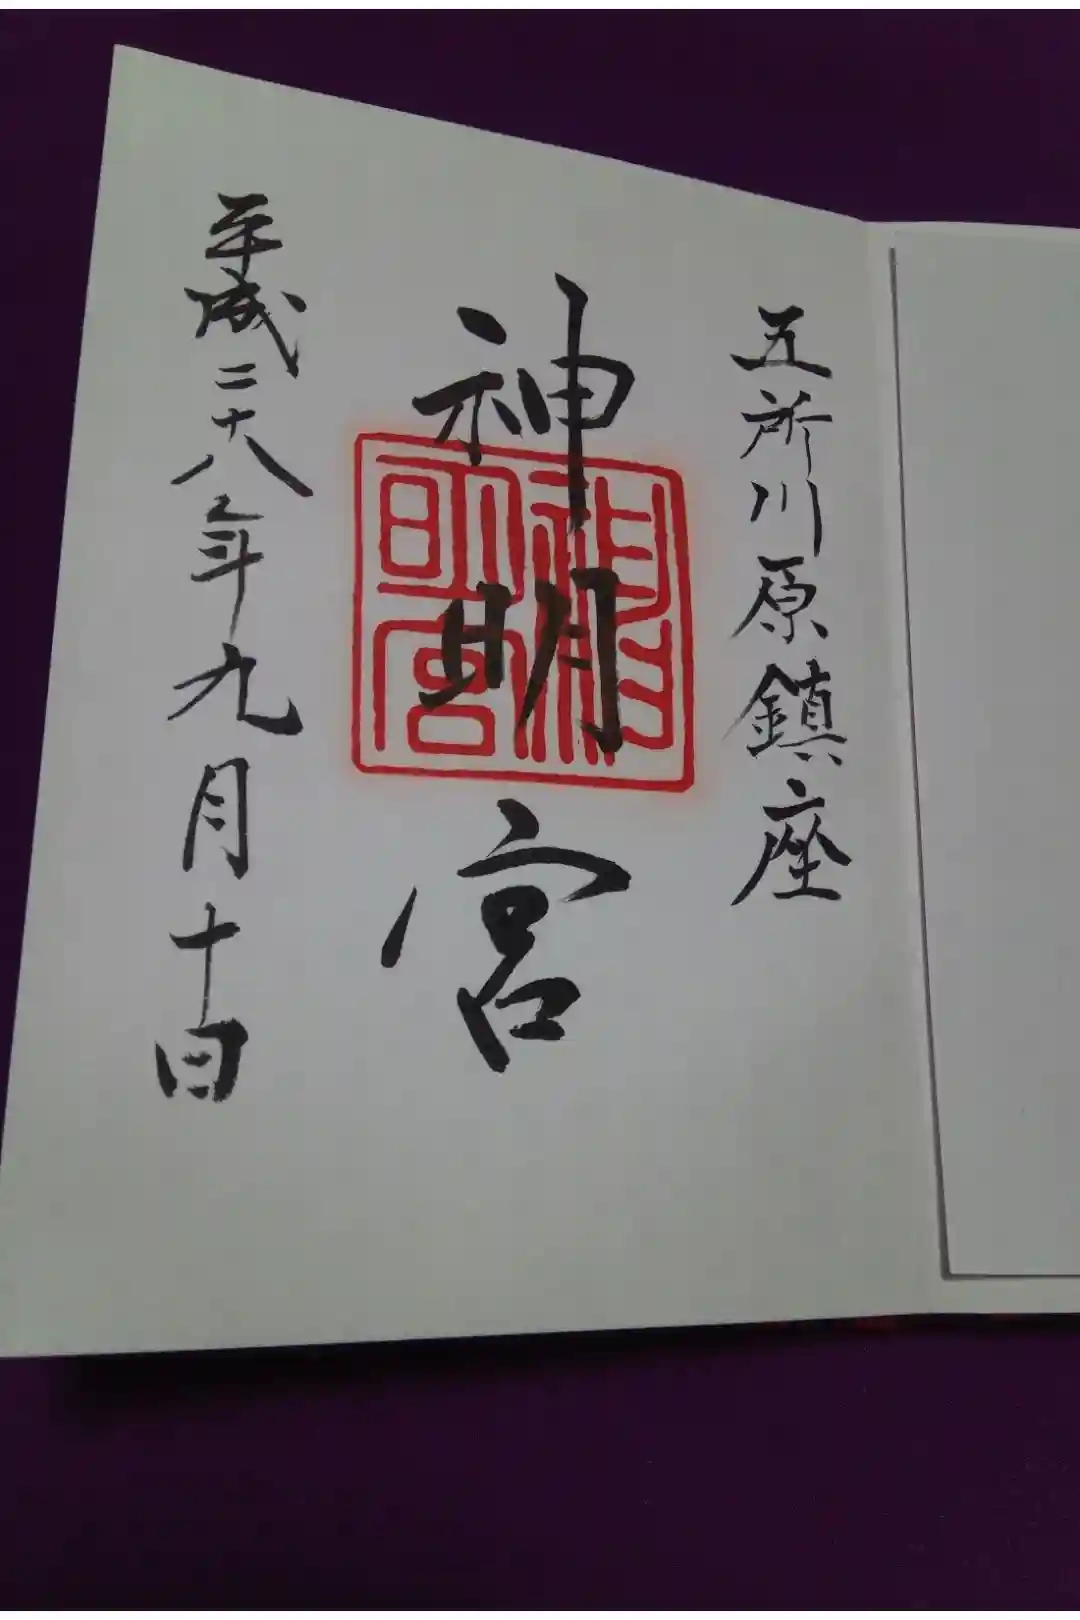 五所川原鎮座
神明宮
平成二十八年九月十日